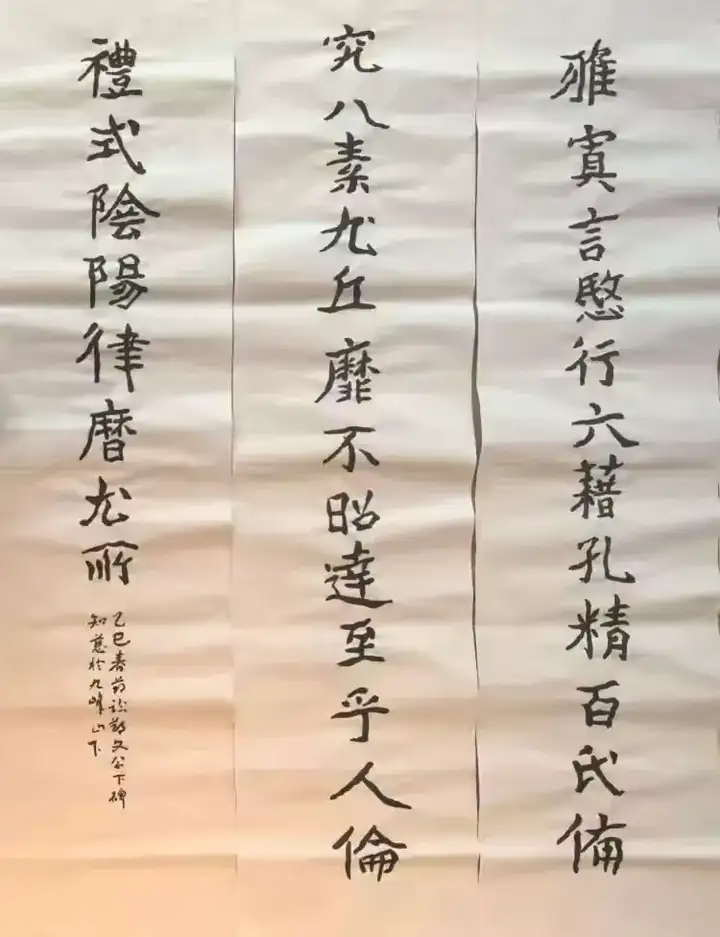 雅寘言愍行六藉孔精百氏俻
究八素九丘靡不昭達至乎人倫
禮式陰陽律曆尤所
乙巳春節臨鄭文公下碑
知於九峰山下